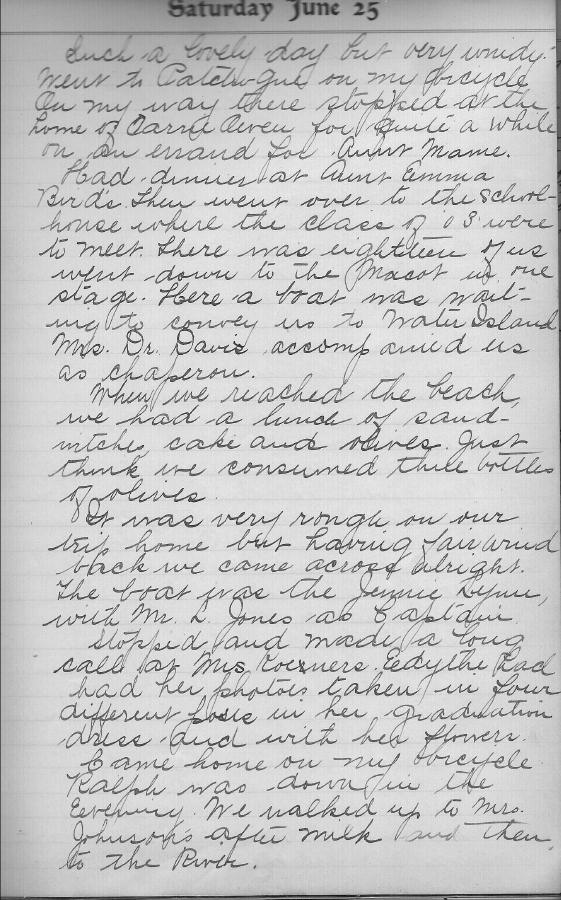 Saturday June 25
Such a lovely day but very windy.
Went to Patchogue on my bicycle
On my way there stopped at the
home of Carrie for quite a while
on an errand for Aunt Mame.
Had dinner at Aunt Emma
Bird's. Then went over to the School-
house where the class of '03 were
to meet. There was eighteen of us
went down to the Mascot in one
stage. Here a boat was wait-
ing to convey us to Water Island
Mrs. Dr. Davis accompanied us
as chaperon.
When we reached the beach,
we had a lunch of sand-
witches cake and olives. Just
think we consumed three bottles
of olives.
It was very rough on our
trip home but having fair wind
back we came across alright.
The boat was the Jennie Lynn,
with Mr. L. Jones as Captain.
Stopped and made a long
call at Mrs. Koerners. Edythe had
had her photos taken in four
different poses in her graduation
dress and with her flowers.
Came home on my bicycle
Ralph was down in the
Evening. We walked up to Mrs.
Johnson's after milk and then
to the River.